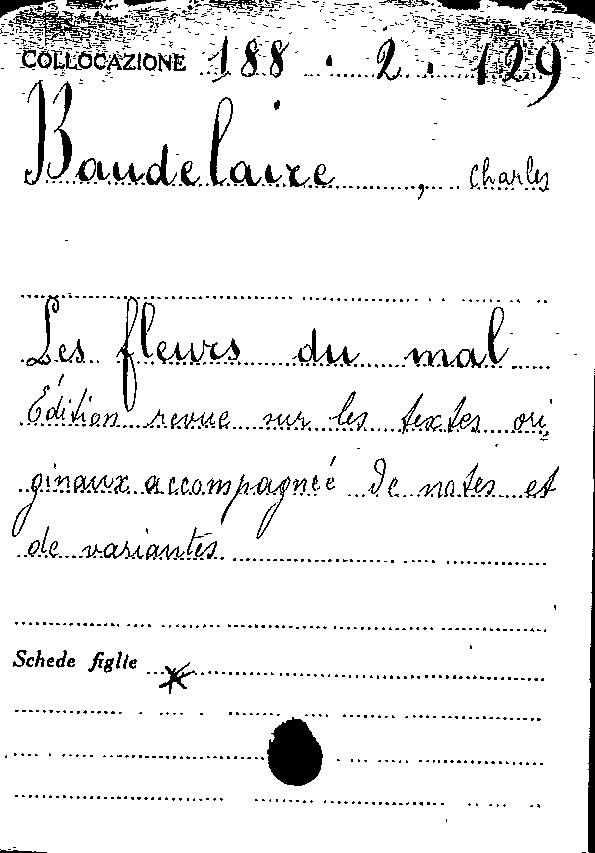 COLLOCAZIONE 188 . 2 . 129
Baudelaire , Charles
Les fleurs du mal
Édition revue sur les textes ori-
ginaux accompagnée de notes et
de variantes
Schede figlie *